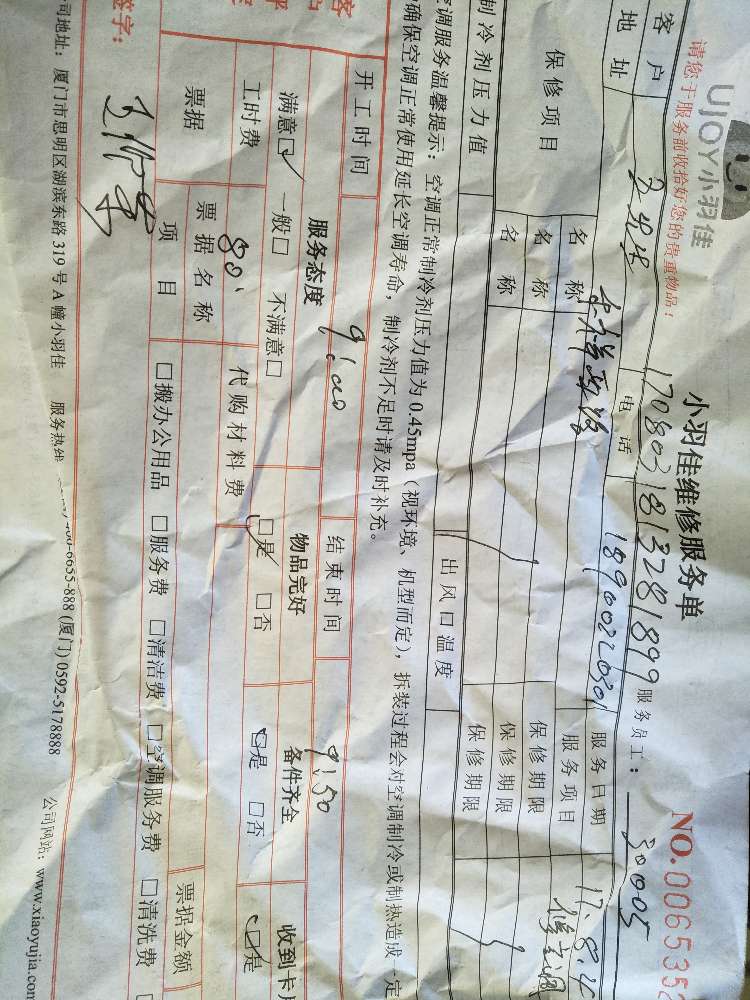 UJOY小羽佳
小羽佳维修服务单
NO.0065352
请您于服务前收拾好您的贵重物品！
1708031813281899
服务员工：30005
客户
电话
18900220301
服务日期
17.8.4
地址
服务项目
修空调
保修项目
名称
保修期限
名称
保修期限
名称
保修期限
制冷剂压力值
出风口温度
空调服务温馨提示：空调正常制冷剂压力值为0.45mpa（视环境、机型而定），拆装过程会对空调制冷或制热造成一定
确保空调正常使用延长空调寿命，制冷剂不足时请及时补充。
开工时间
9:00
结束时间
9:50
服务态度
物品完好
备件齐全
收到卡
满意□ 一般□ 不满意□
□是 □否
□是 □否
□是
工时费
80
代购材料费
票据
票据名称
票据金额
项目
□搬办公用品 □服务费 □清洁费 □空调服务费 □清洗费
签字：
司地址：厦门市思明区湖滨东路319号A幢小羽佳 服务热线
400-6655-888 (厦门) 0592-5178888
公司网站：www.xiaoyujia.com